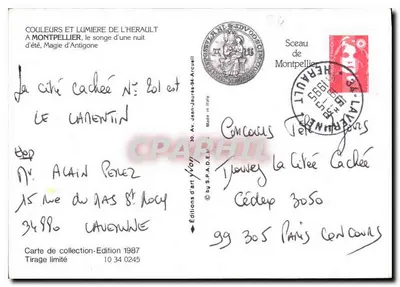 COULEURS ET LUMIERE DE L'HERAULT
A MONTPELLIER, le songe d'une nuit
d'été, Magie d'Antigone
La cité cachée N° 201 est
LE LAMENTIN
Mr ALAIN PEREZ
15 rue du MAS St
34990
Carte de collection-Edition 1987
Tirage limité 10 34 0245
Editions d'art yvon
© by S.P.A.D.E.M.
Made in Italy
Sceau
de
Montpellier
34-LAVERUNE
HERAULT
Concours
Trouvez La Citée Cachée
Cédex 3050
99 305 PARIS CONCOURS